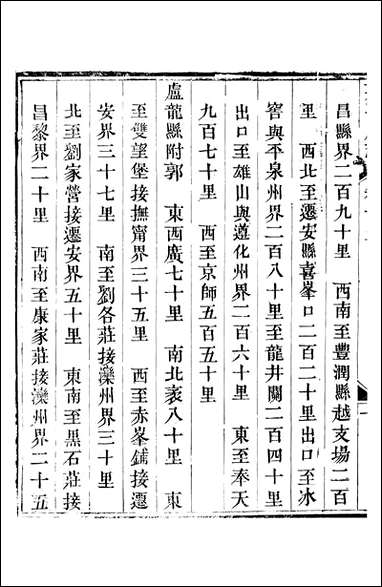 昌縣界二百九十里　西南至豐潤縣越支場二百
里　西北至遷安縣喜峯口二百二十里出口至冰
窖與平泉州界二百八十里至龍井關二百四十里
出口至雄山與遵化州界二百六十里　東至奉天
九百七十里　西至京師五百五十里
盧龍縣附郭　東西廣七十里　南北袤八十里　東
至雙望堡接撫甯界三十五里　西至赤峯鋪接遷
安界三十七里　南至劉各莊接灤州界三十里
北至劉家營接遷安界五十里　東南至黑石莊接
昌黎界二十里　西南至康家莊接灤州界二十五